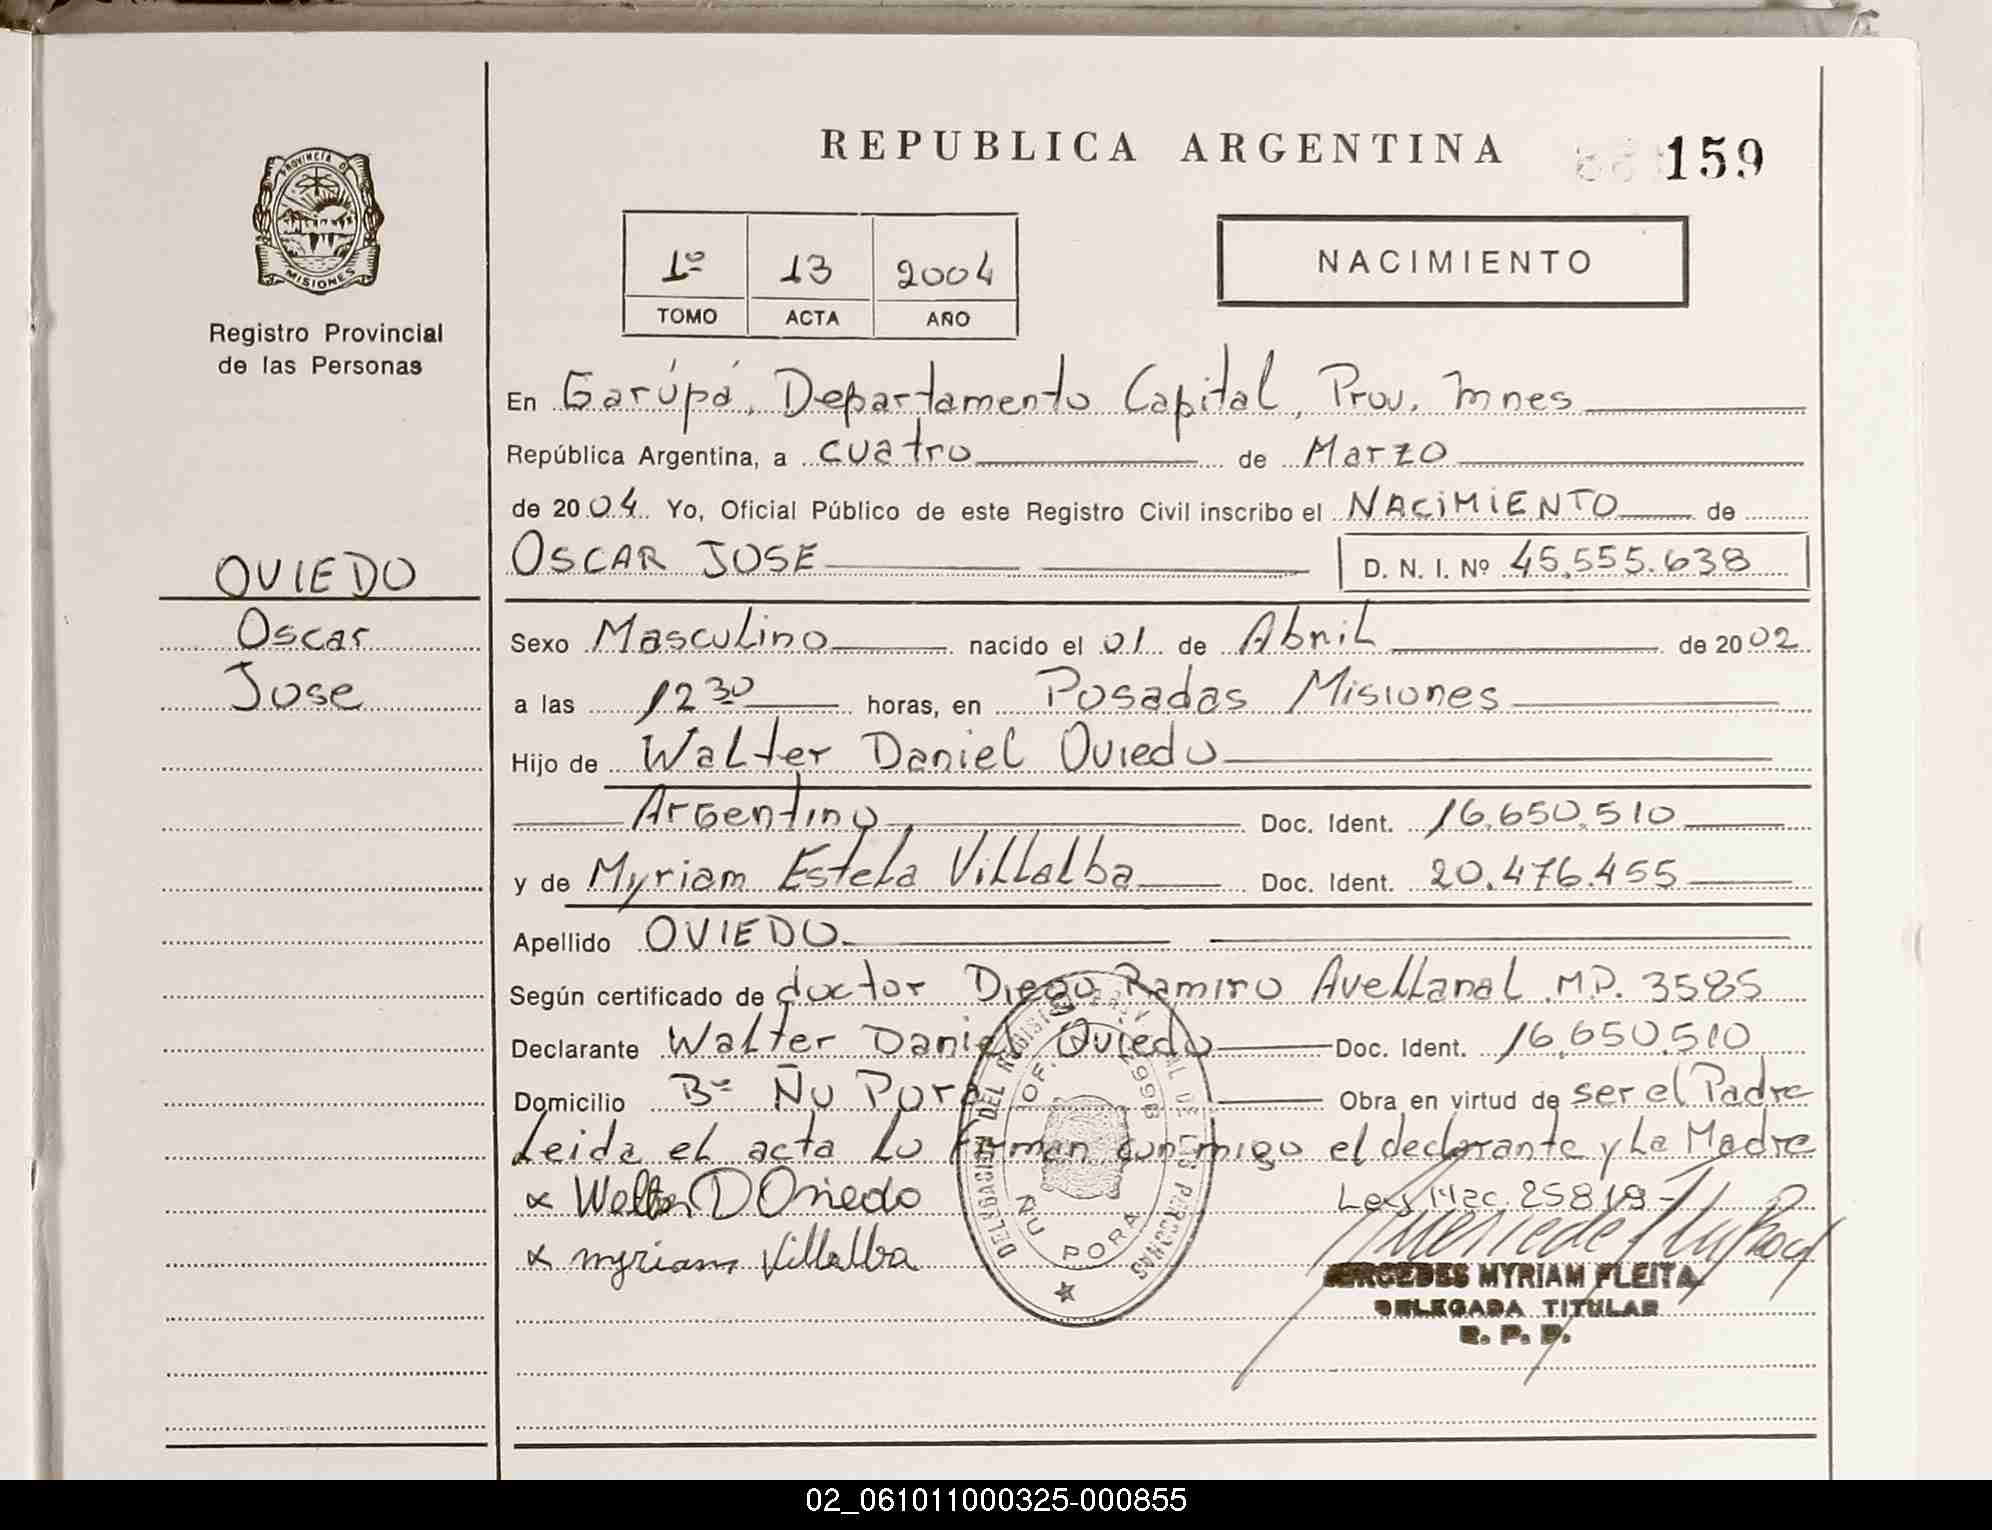 REPUBLICA ARGENTINA
159
PROVINCIA DE MISIONES
Registro Provincial
de las Personas
1º 13 2004
TOMO ACTA AÑO
NACIMIENTO
En Garúpá, Departamento Capital, Prov. Mnes
República Argentina, a cuatro de Marzo
de 2004 Yo, Oficial Público de este Registro Civil inscribo el NACIMIENTO de
OVIEDO
Oscar
Jose
OSCAR JOSE D. N. I. Nº 45.555.638
Sexo Masculino nacido el 01 de Abril de 2002
a las 12 30 horas, en Posadas Misiones
Hijo de Walter Daniel Oviedo
Argentino Doc. Ident. 16.650.510
y de Myriam Estela Villalba Doc. Ident. 20.476.455
Apellido OVIEDO
Según certificado de doctor Diego Ramiro Avellanal M.P. 3585
Declarante Walter Daniel Oviedo Doc. Ident. 16.650.510
Domicilio Bº Ñu Pora Obra en virtud de ser el Padre
Leida el acta Lo firman conmigo el declarante y La Madre
x Walter D Oviedo
Ley Nac. 25819
x myriam Villalba
DELEGACION DEL REGISTRO PROVINCIAL DE LAS PERSONAS
OF. 2998
ÑU PORA
MERCEDES MYRIAM FLEITA
DELEGADA TITULAR
R. P. P.
02_061011000325-000855